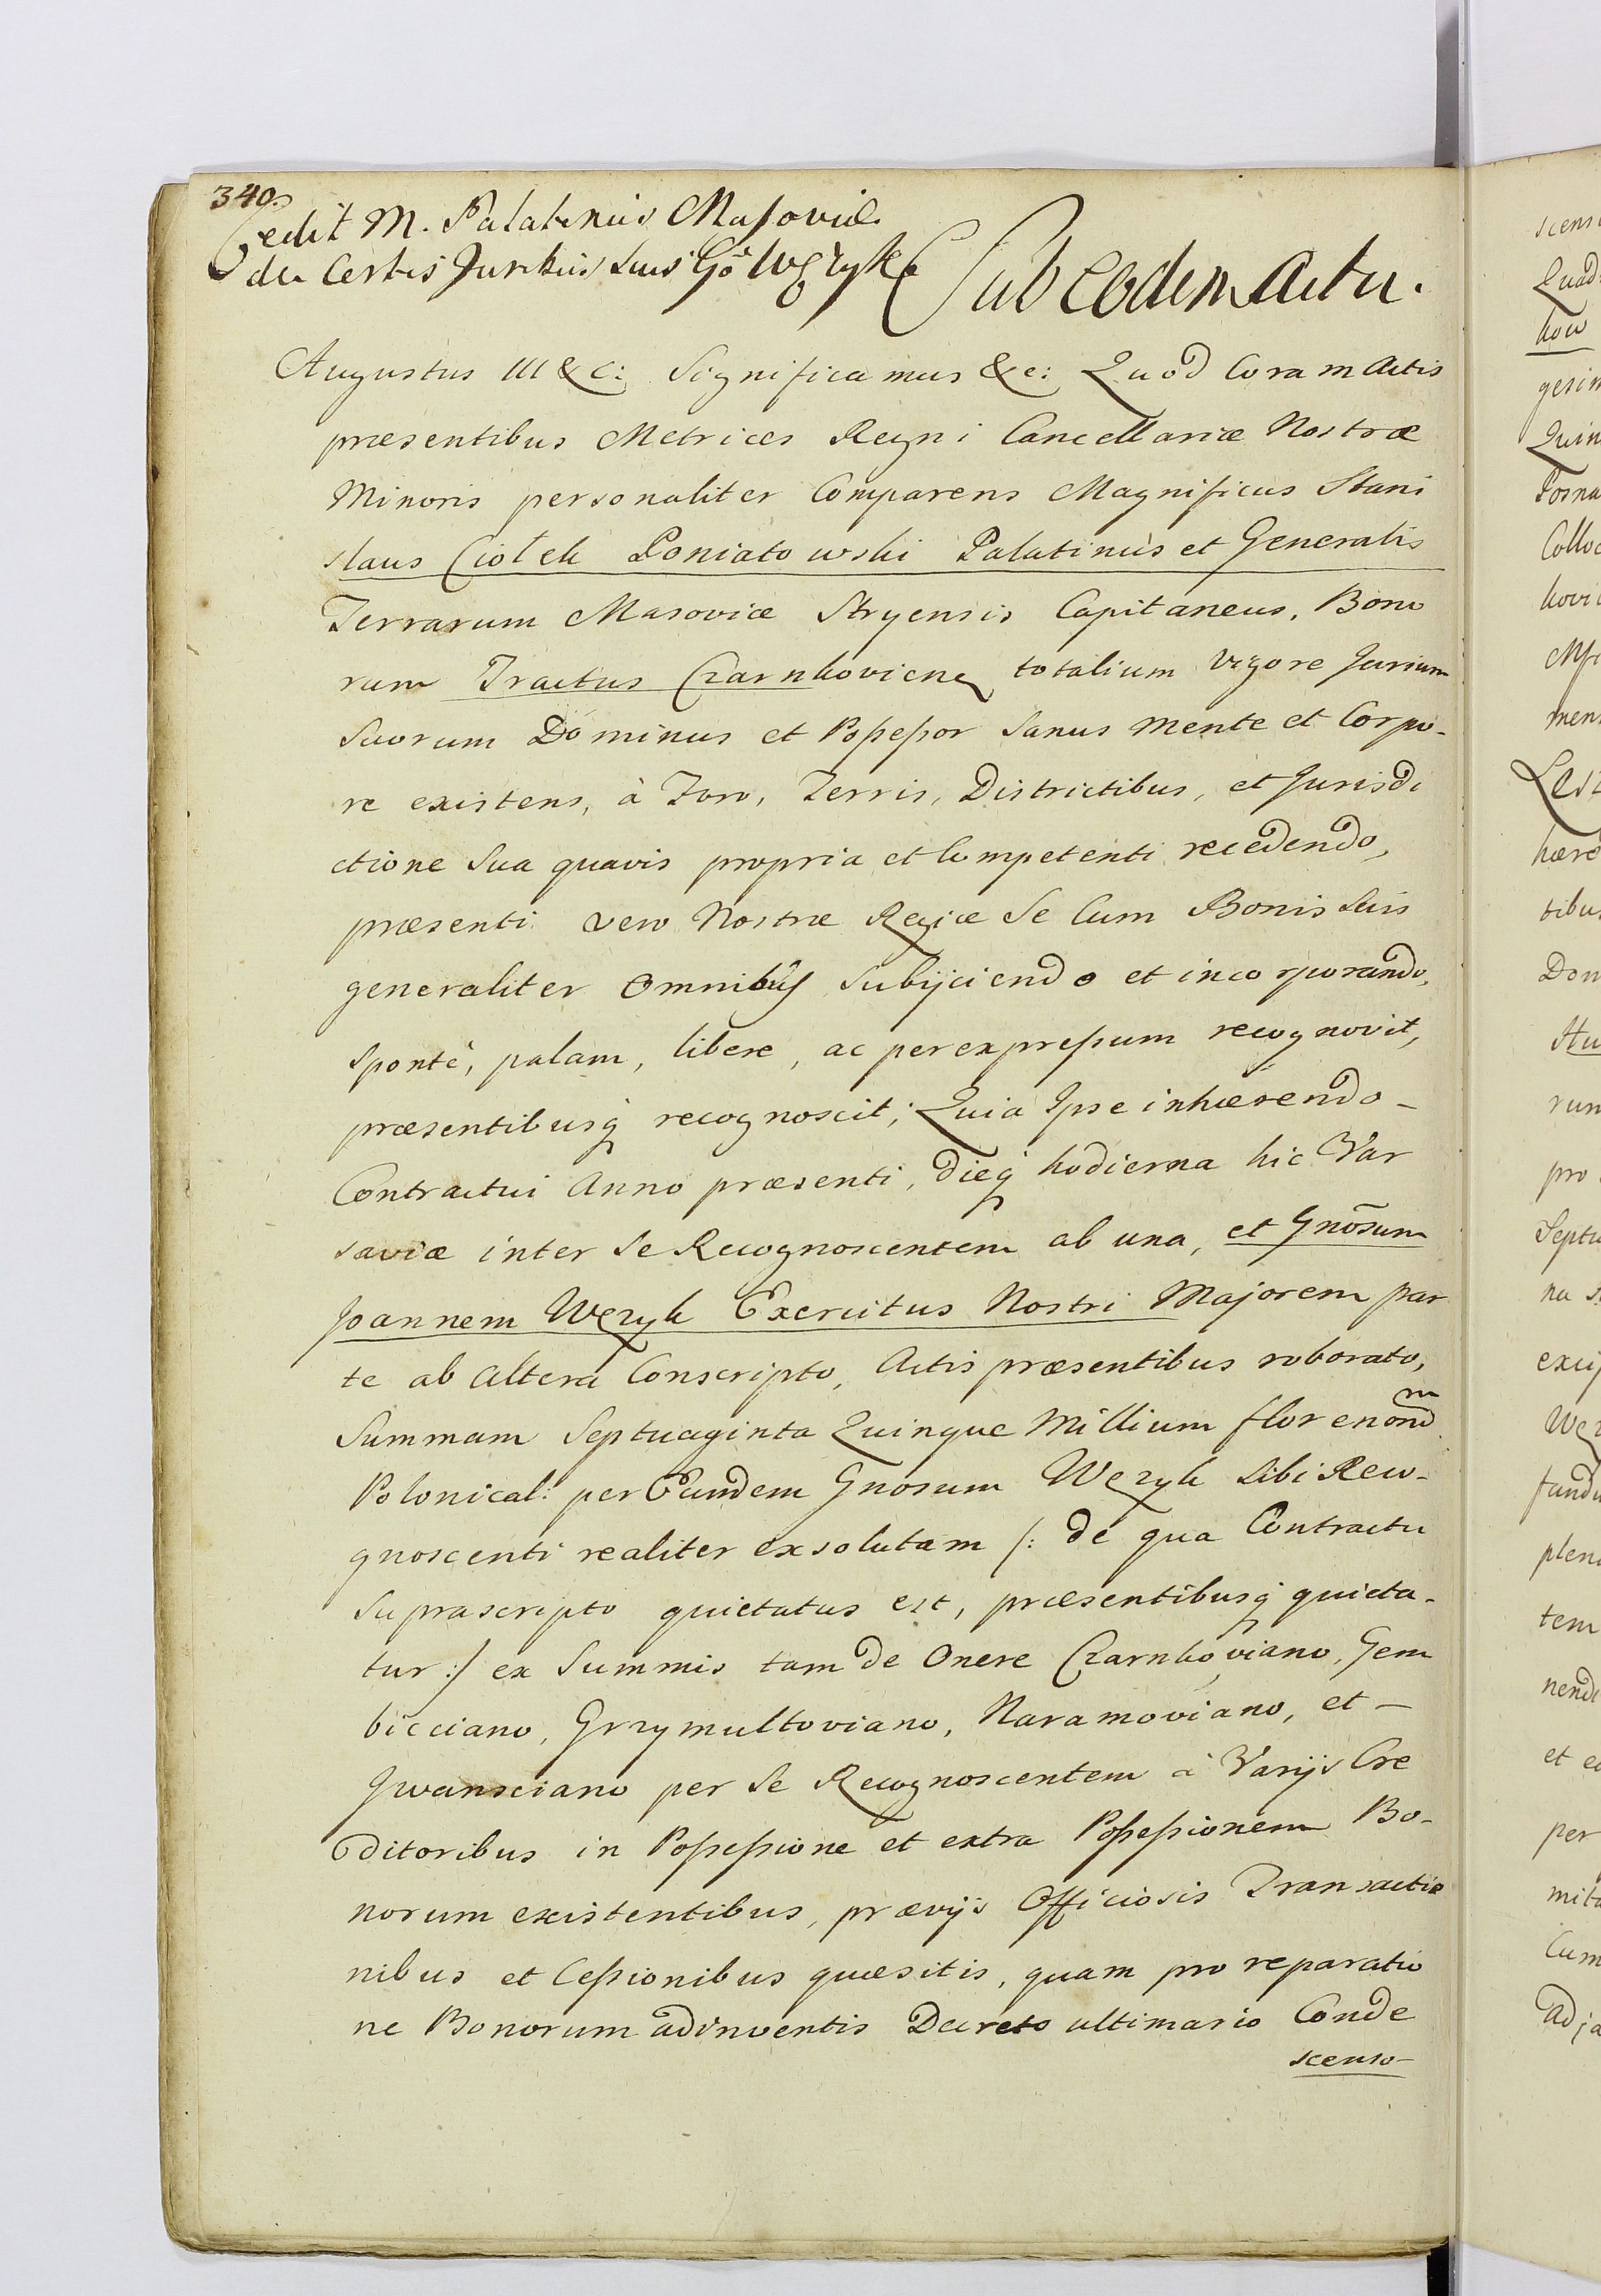 340.
Cedit M. Palatinus Masoviæ
de Certis Juribus suis Gō Węzyk
Sub eodem Actu.
Augustus III &c: Significamus &c: Quod Coram Actis
præsentibus Metrices Regni Cancellariæ Nostræ
Minoris personaliter Comparens Magnificus Stani
slaus Ciołek Poniatowski Palatinus et Generalis
Terrarum Masoviæ Stryensis Capitaneus, Bono
rum Tractus Czarnkovien totalium vigore Jurium
Suorum Dominus et Possessor sanus mente et Corpo-
re existens, à Foro, Terris, Districtibus, et Jurisdi
ctione sua quavis propria et Competenti recedendo,
præsenti vero Nostræ Regiæ se Cum Bonis suis
generaliter omnibus subijciendo et incorporando,
sponte, palam, libere, ac per expressum recognovit,
præsentibusq recognoscit; Quia Ipse inhærendo –
Contractui Anno præsenti, dieq hodierna hic Var
saviæ inter se Recognoscentem ab una, et Gnōsum
Joannem Węzyk Exercitus Nostri Majorem par
te ab altera Conscripto, Actis præsentibus roborato,
Summam Septuaginta Quinque Millium florenorum
Polonical: per Eundem Gnosum Węzyk sibi Reco-
gnoscenti realiter exsolutam /: de qua Contractu
supra scripto quietatus est, præsentibusq quieta-
tur :/ ex Summis tam de Onere Czarnkoviano, Gem
bicciano, Grzymultoviano, Naramoviano, et –
Iwansciano per se Recognoscentem à Varijs Cre
ditoribus in Possessione et extra Possessionem Bo-
norum existentibus, prævijs Officiosis Transactio
nibus et Cessionibus quæsitis, quam pro reparatio
ne Bonorum adinventis Decreto ultimario Conde
scenso–